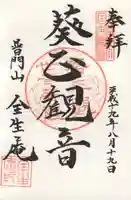 奉拝
平成十九年八月十九日
葵正観音
普門山
全生庵